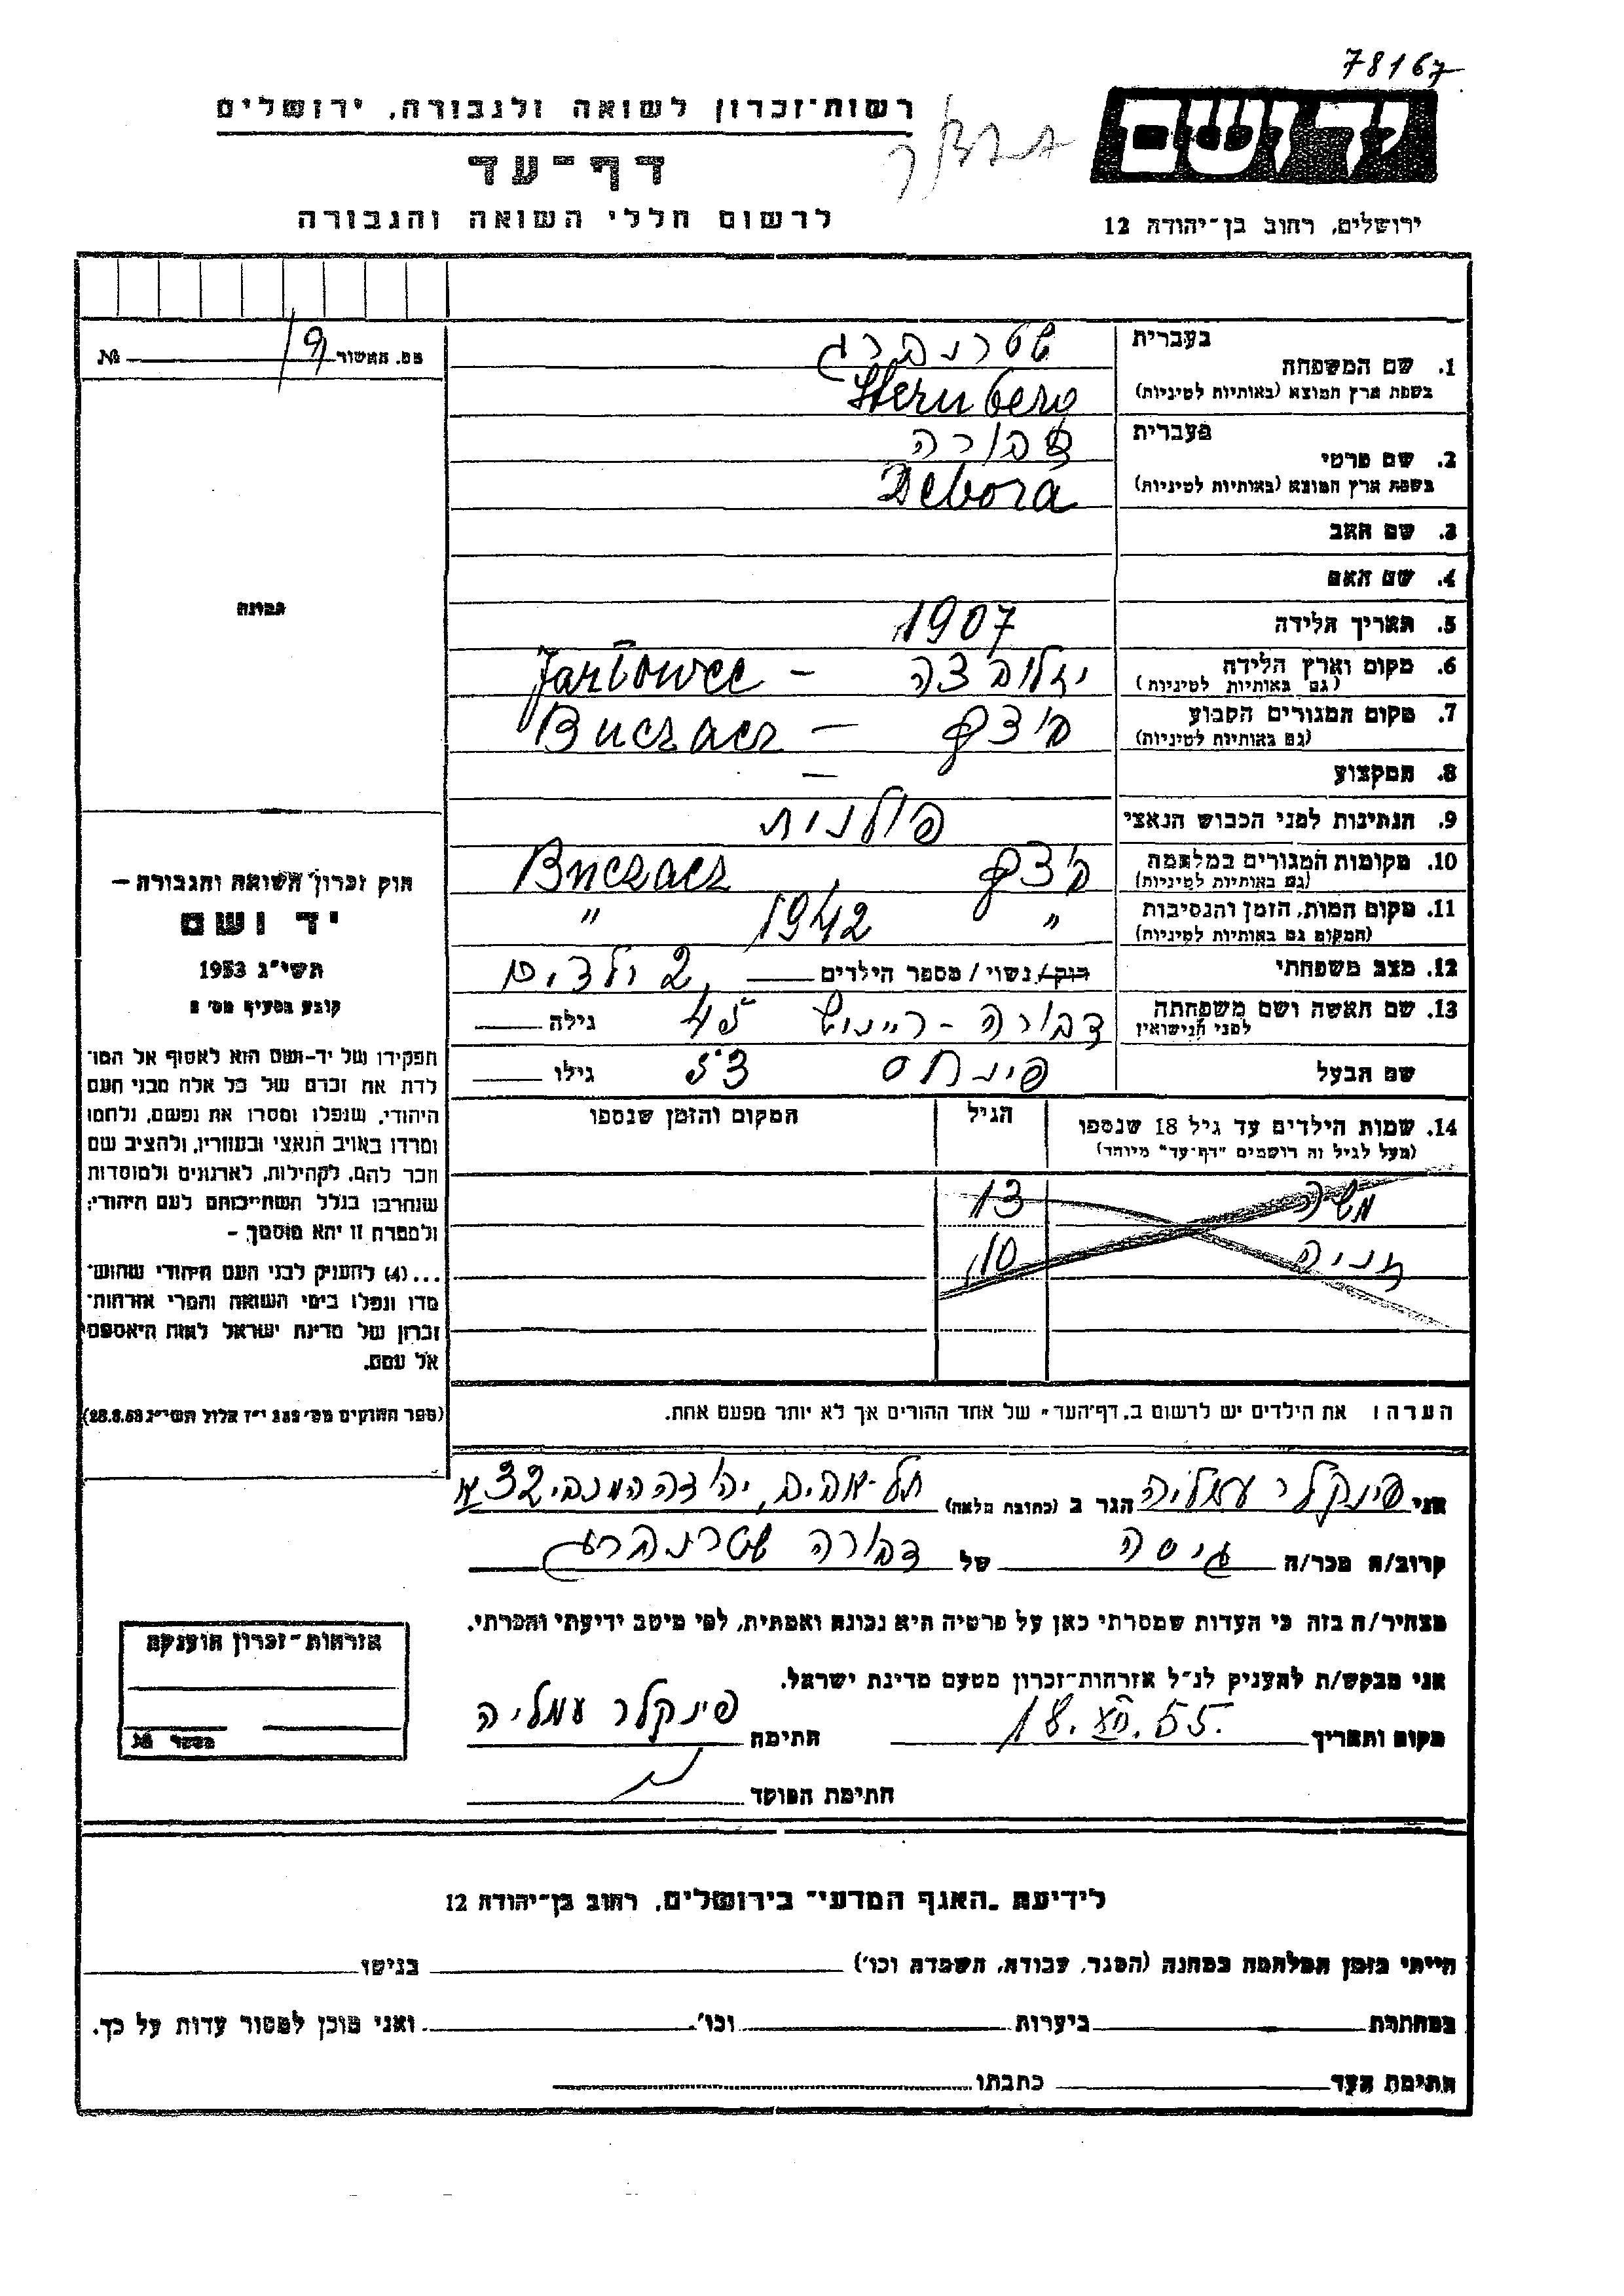 78167
יד ושם
רשות-זכרון לשואה ולגבורה, ירושלים
דף-עד
לרשום חללי השואה והגבורה
ירושלים, רחוב בן-יהודה 12
מס. האשור 19 №
1. שם המשפחה
בעברית שטרנברג
בשפת ארץ המוצא (באותיות לטיניות) Sternberg
2. שם פרטי
בעברית דבורה
בשפת ארץ המוצא (באותיות לטיניות) Debora
3. שם האב
4. שם האם
5. תאריך הלידה 1907
6. מקום וארץ הלידה
(גם באותיות לטיניות) יזלובצה –
7. מקום המגורים הקבוע
(גם באותיות לטיניות) – Buczacz
8. המקצוע —
9. הנתינות לפני הכבוש הנאצי פולנית
10. מקומות המגורים במלחמה
(גם באותיות לטיניות) Buczacz
11. מקום המות, הזמן והנסיבות
(המקום גם באותיות לטיניות) " 1942 "
12. מצב משפחתי רווק/נשוי/ מספר הילדים 2 ילדים
13. שם האשה ושם משפחתה
לפני הנישואין דבורה - גילה 45
שם הבעל פינחס גילו 53
14. שמות הילדים עד גיל 18 שנספו
(מעל לגיל זה רושמים "דף-עד" מיוחד)
הגיל
המקום והזמן שנספו
13
10
הערה: את הילדים יש לרשום ב"דף-העד" של אחד ההורים אך לא יותר מפעם אחת.
תמונה
חוק זכרון השואה והגבורה –
יד ושם
תשי"ג 1953
קובע בסעיף מס' 2
תפקידו של יד-ושם הוא לאסוף אל המו-
לדת את זכרם של כל אלה מבני העם
היהודי, שנפלו ומסרו את נפשם, נלחמו
ומרדו באויב הנאצי ובעוזריו, ולהציב שם
וזכר להם, לקהילות, לארגונים ולמוסדות
שנחרבו בגלל השתייכותם לעם היהודי;
ולמטרה זו יהא מוסמך –
...(4) להעניק לבני העם היהודי שהוש-
מדו ונפלו בימי השואה והמרי אזרחות-
זכרון של מדינת ישראל לאות היאספם
אל עמם.
(ספר החוקים מס' 132 י"ז אלול תשי"ג 28.8.53)
אני פינקלר עמליה הגר ב (כתובת מלאה) תל-אביב, יהודה המכבי 32א
קרוב/ה מכר/ה גיסה של דבורה שטרנברג
מצהיר/ה בזה כי העדות שמסרתי כאן על פרטיה היא נכונה ואמתית, לפי מיטב ידיעתי והכרתי.
אני מבקש/ת להעניק לנ"ל אזרחות-זכרון מטעם מדינת ישראל.
מקום ותאריך חתימה פינקלר עמליה
חתימת הפוקד
אזרחות-זכרון הוענקה
מספר №
לידיעת "האגף המדעי" בירושלים, רחוב בן-יהודה 12
הייתי בזמן המלחמה במחנה (הסגר, עבודה, השמדה וכו') בגיטו
במחתרת ביערות וכו'. ואני מוכן למסור עדות על כך.
חתימת העד כתבתו